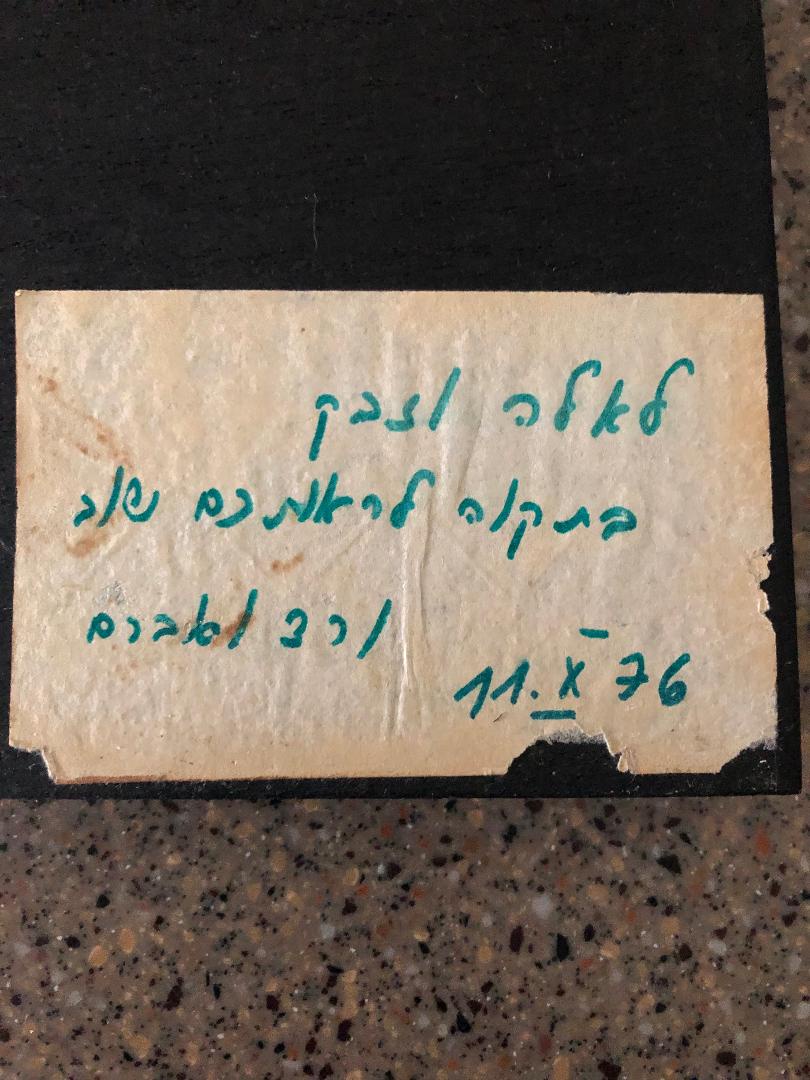 לאלה
בתקוה לראותכם שוב
ורד ואברם
11.X 76